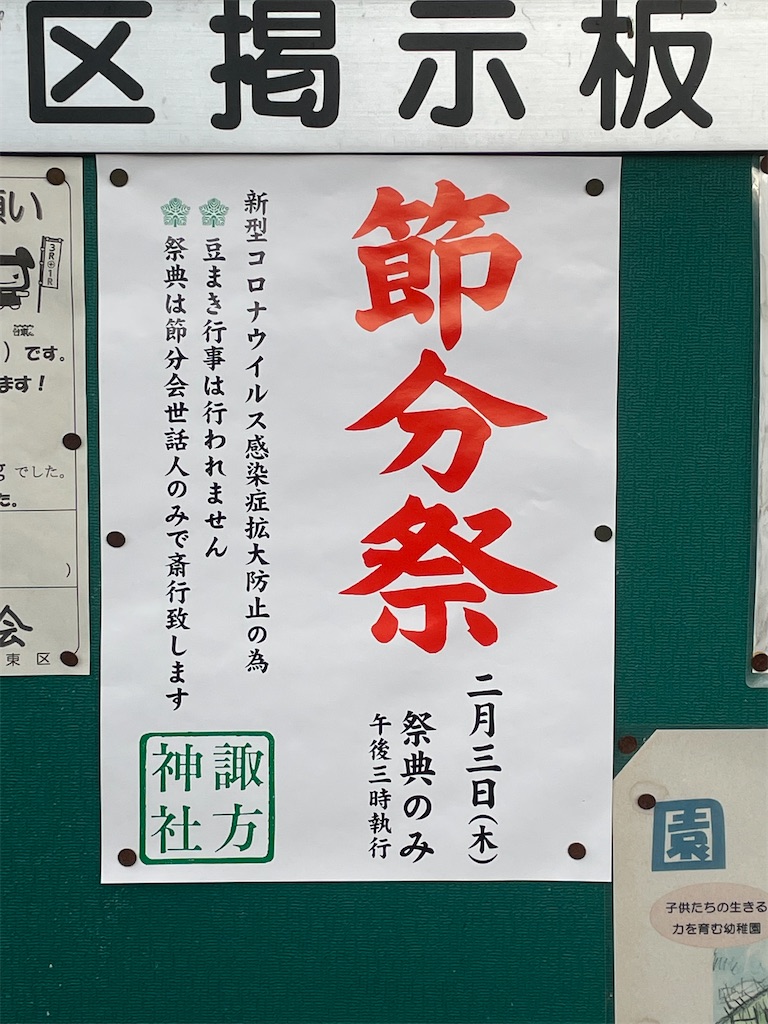 区掲示板
節分祭
二月三日(木)
祭典のみ
午後三時執行
新型コロナウイルス感染症拡大防止の為
豆まき行事は行われません
祭典は節分会世話人のみで斎行致します
諏方
神社
願い
3R+1R
)です。
ます!
でした。
た。
)
会
東区
園
子供たちの生きる
力を育む幼稚園